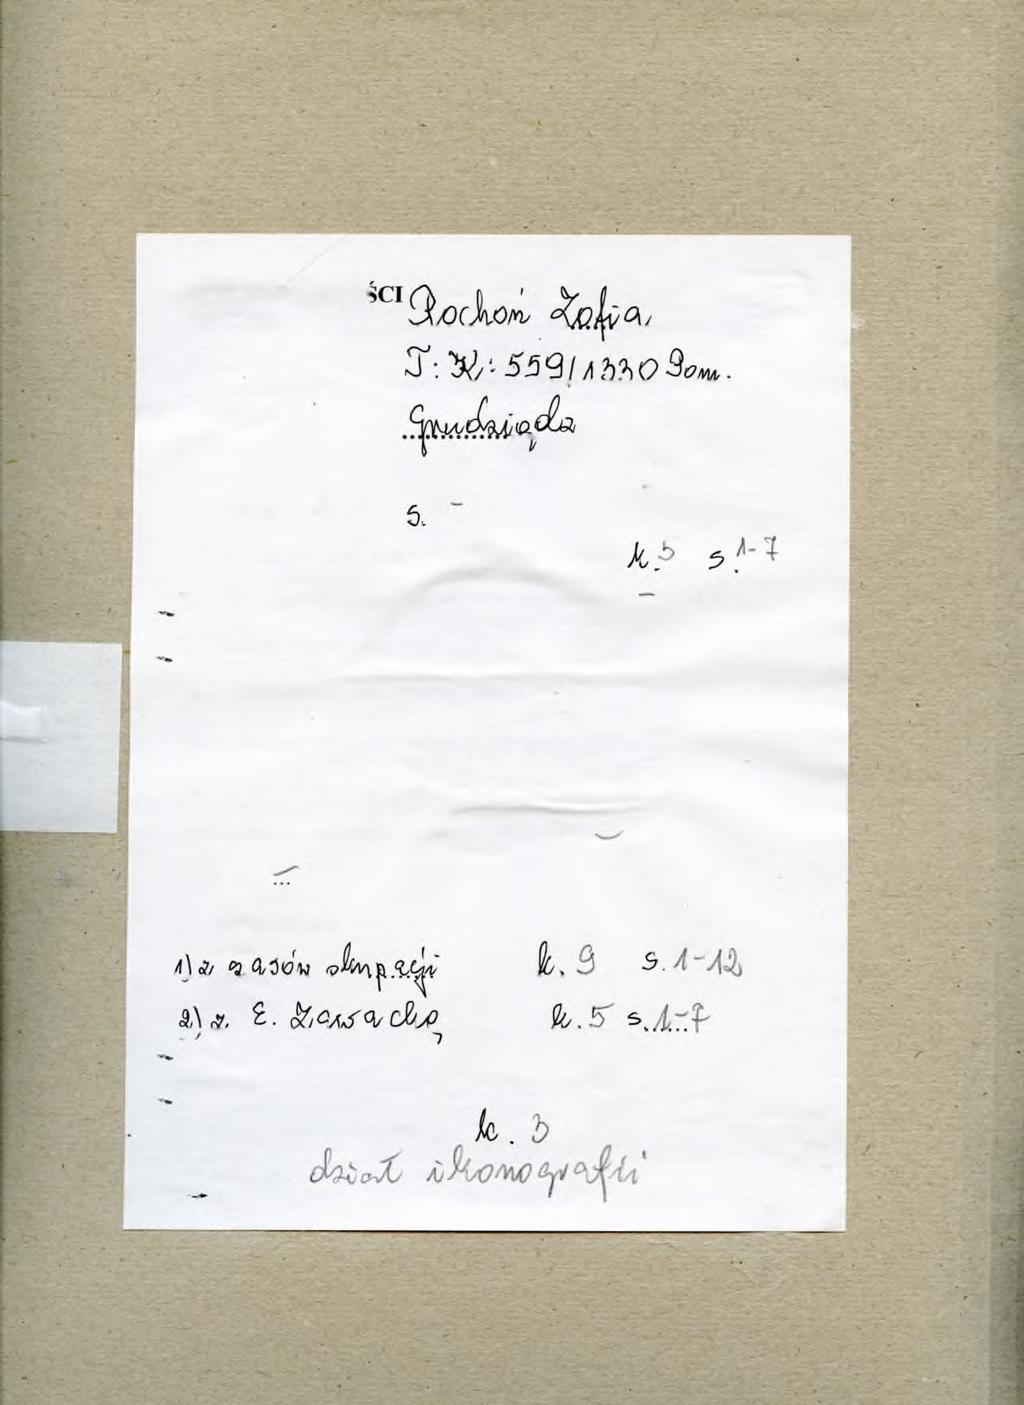 ŚCI Rochoń Zofia
T: K: 559/1330 Pom.
Grudziądz
s. –
k. 5 s. 1-7
1) z czasów okupacji k. 9 s. 1-12
2) z E. Zawacką k. 5 s. 1-7
k. 3
dział ikonografii